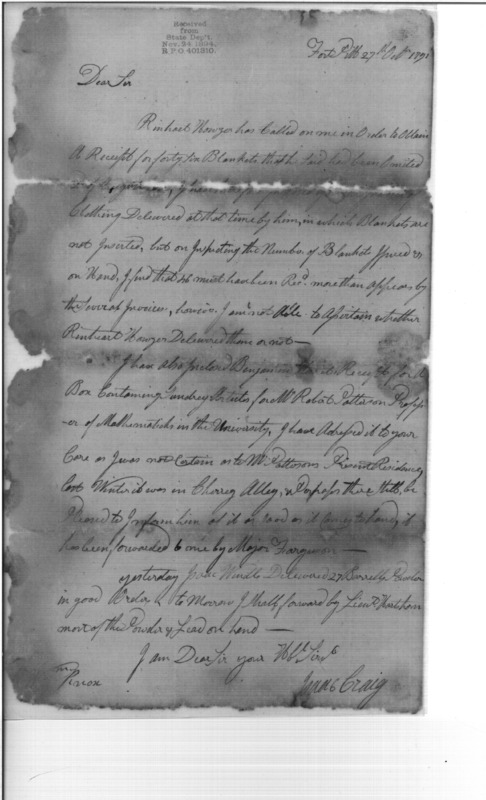 Received
from
State Dep't.
Nov. 24 1894.
R.P.O 401910.
Fort Pitt 27th Octr 1791
Dear Sir
Rinhart Howzer has Called on me in Order to Obtain
A Receipt for forty six Blankets that he said had been Omited
Clothing Delivered at that time by him, in which Blankets are
not Inserted, but on Inspecting the Number of Blankets Issued &
on Hand, I find that 46 must have been Recd. more than appears by
the Several Invoices, howevr. I am not Able to Assertain whether
Rinheart Howzer Delivered them or not—
I have also Inclosed Benjamin Receipt for A
Box Containing Sundrey Articles for Mr Robert Patterson Profess
-or of Mathematicks in the University, I have Adressed it to your
Care as I was not Certain as to Mr. Pattersons Present Residence,
last Winter it was in Cherrey Alley, & Perhaps there Still, be
Pleased to Inform him of it as soon as it Comes to hand, it
has been forwarded to me by Major Ferguson—
yesterday Isaac Delivered 27 Barrells Powder
in good Order & to Morrow I shall forward by Lieut. Hartshorn
most of the Powder & Lead on hand—
I am Dear Sir your Hbl. Servt
Isaac Craig